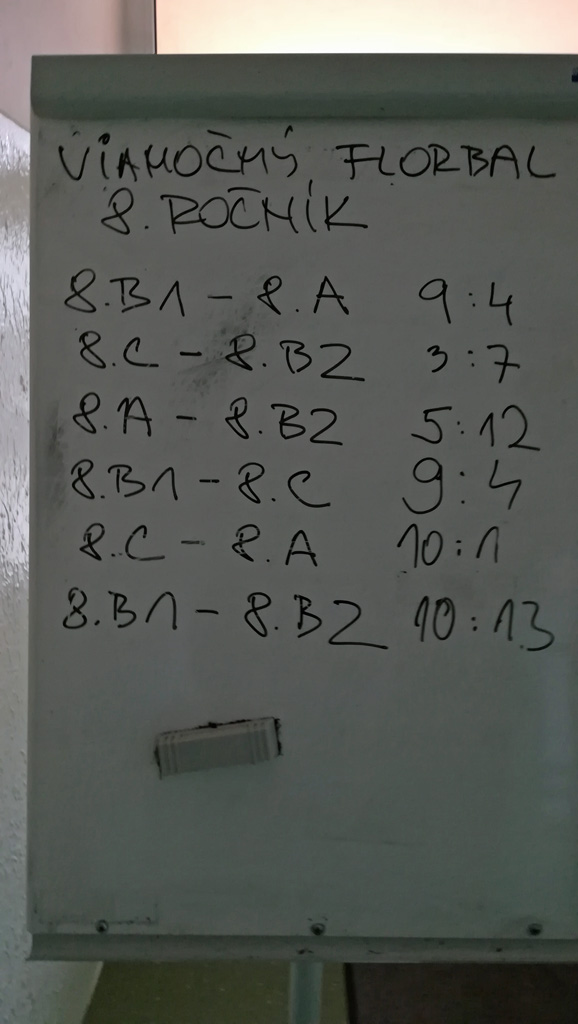 VIANOČNÝ FLORBAL
8. ROČNÍK
8.B1 - 8.A 9:4
8.C - 8.B2 3:7
8.A - 8.B2 5:12
8.B1 - 8.C 9:4
8.C - 8.A 10:1
8.B1 - 8.B2 10:13